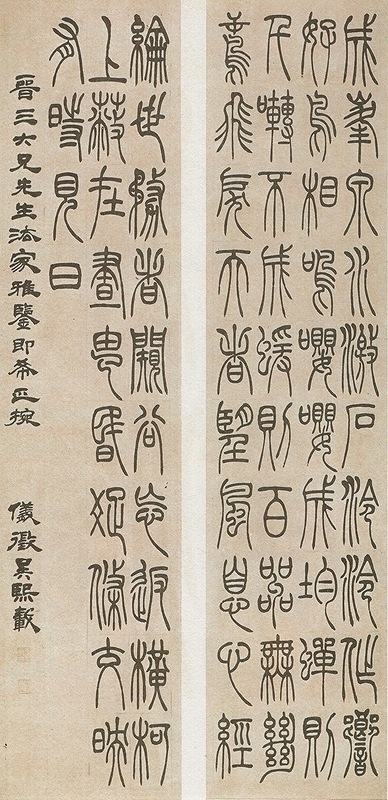 成峯泉水激石泠泠作響
好鳥相鳴嚶嚶成均蟬則
千囀不猨則百嘂無絕
鳶飛戾天者望風息心經
綸世務者闚谷忘返橫柯
上蔽在晝昏疏條交映
有時見日
晉三六兄先生法家雅鑒即希正捥
儀徵吳熙載